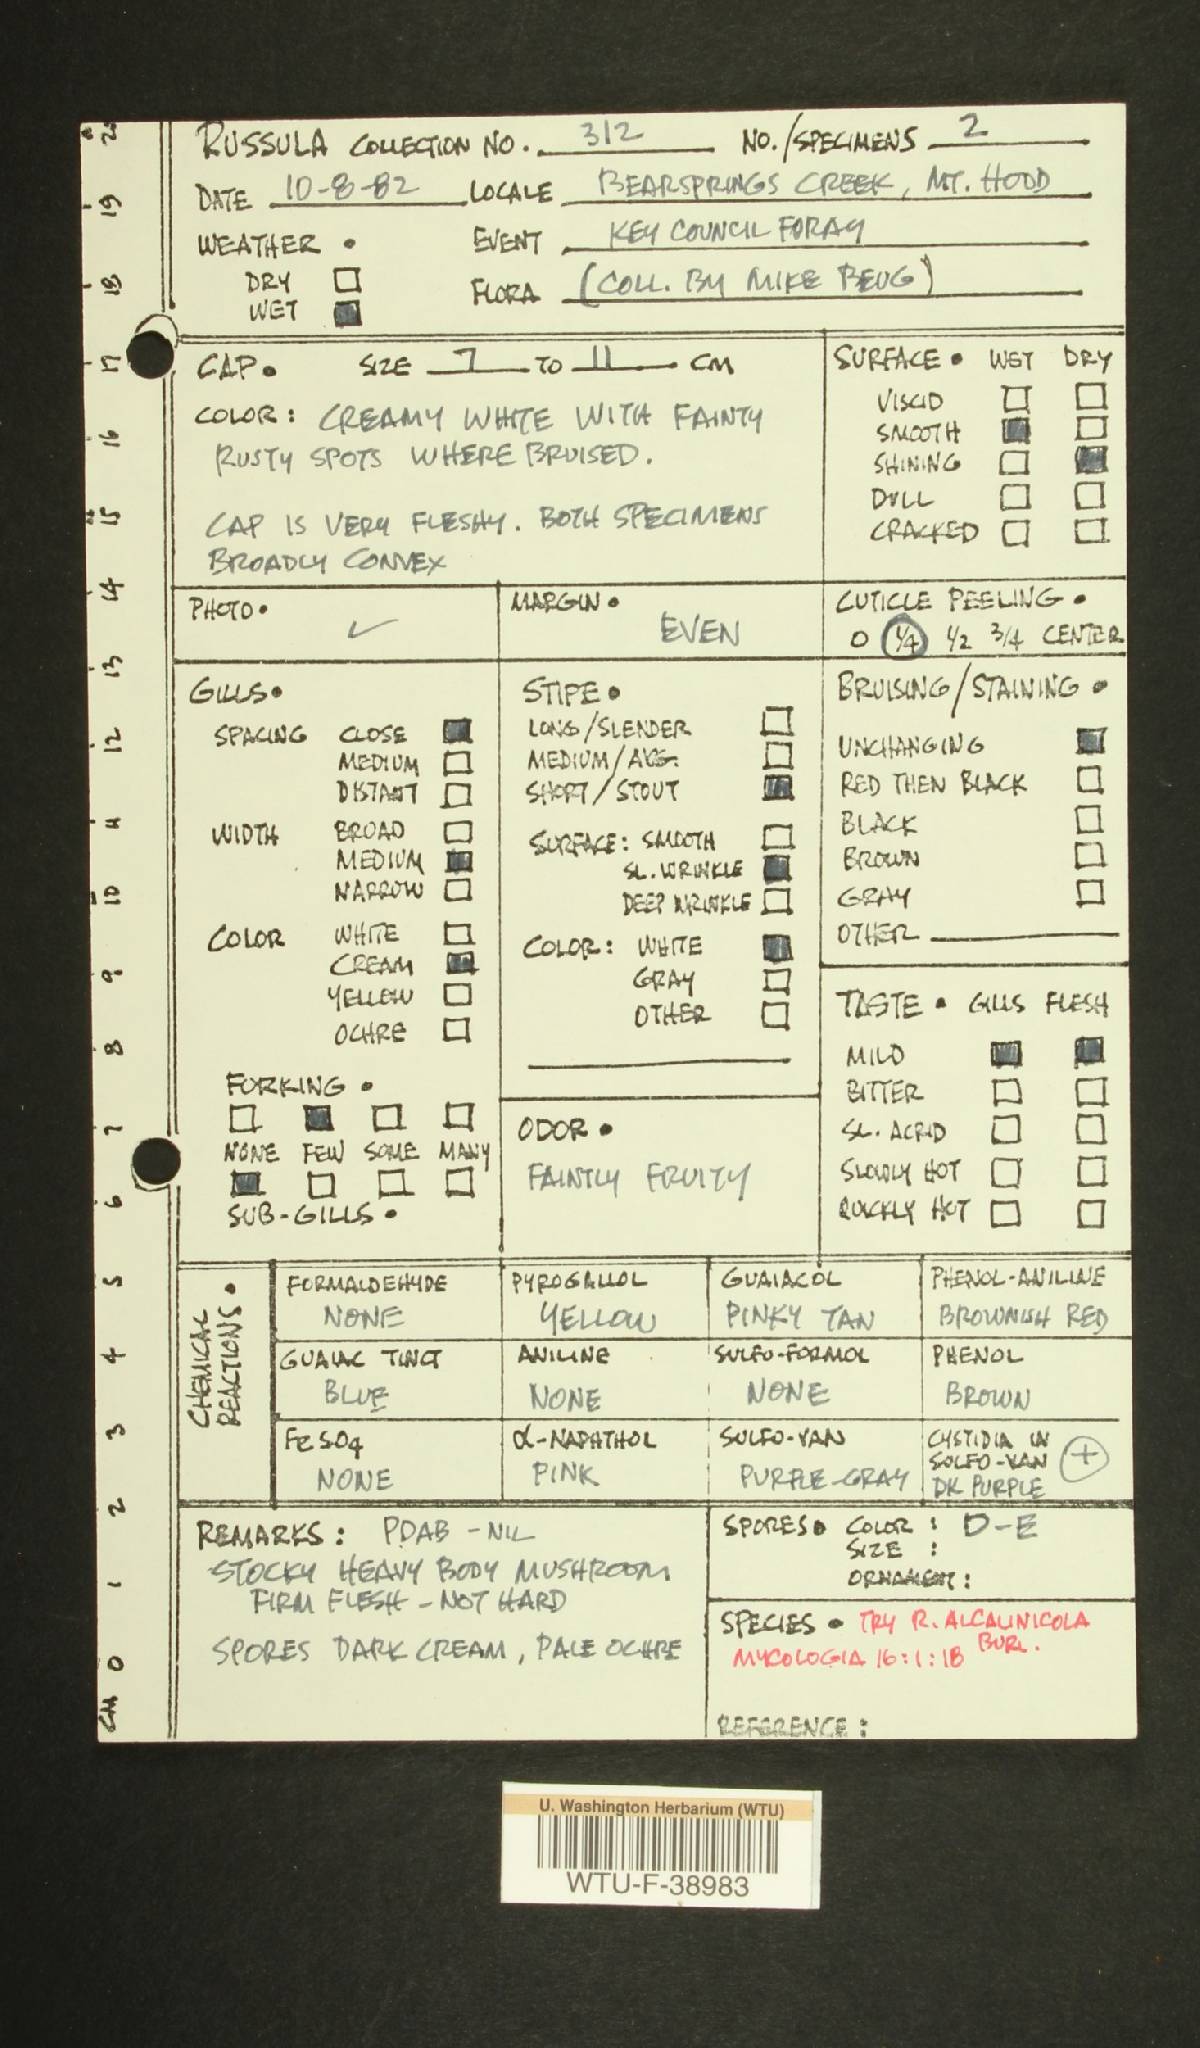 RUSSULA COLLECTION NO. 312 NO./SPECIMENS 2
DATE 10-8-82 LOCALE BEARSPRINGS CREEK, MT. HOOD
WEATHER • EVENT KEY COUNCIL FORAY
DRY
WET
FLORA (COLL. BY MIKE BEUG)
CAP • SIZE 7 TO 11 CM
COLOR: CREAMY WHITE WITH FAINTY
RUSTY SPOTS WHERE BRUISED.
CAP IS VERY FLESHY. BOTH SPECIMENS
BROADLY CONVEX
SURFACE • WET DRY
VISCID
SMOOTH
SHINING
DULL
CRACKED
PHOTO • ✓
MARGIN •
EVEN
CUTICLE PEELING •
0 1/4 1/2 3/4 CENTER
GILLS •
SPACING CLOSE
MEDIUM
DISTANT
WIDTH BROAD
MEDIUM
NARROW
COLOR WHITE
CREAM
YELLOW
OCHRE
FORKING •
NONE FEW SOME MANY
SUB-GILLS •
STIPE •
LONG/SLENDER
MEDIUM/AVG.
SHORT/STOUT
SURFACE: SMOOTH
SL. WRINKLE
DEEP WRINKLE
COLOR: WHITE
GRAY
OTHER
ODOR •
FAINTLY FRUITY
BRUISING/STAINING •
UNCHANGING
RED THEN BLACK
BLACK
BROWN
GRAY
OTHER
TASTE • GILLS FLESH
MILD
BITTER
SL. ACRID
SLOWLY HOT
QUICKLY HOT
CHEMICAL
REACTIONS •
FORMALDEHYDE
NONE
PYROGALLOL
YELLOW
GUAIACOL
PINKY TAN
PHENOL-ANILINE
BROWNISH RED
GUAIAC TINCT
BLUE
ANILINE
NONE
SULFO-FORMOL
NONE
PHENOL
BROWN
FeSO4
NONE
α-NAPHTHOL
PINK
SULFO-VAN
PURPLE-GRAY
CYSTIDIA IN
SULFO-VAN +
DK PURPLE
REMARKS: PDAB - NIL
STOCKY HEAVY BODY MUSHROOM
FIRM FLESH - NOT HARD
SPORES DARK CREAM, PALE OCHRE
SPORES • COLOR: D-E
SIZE:
ORNAMENT:
SPECIES • TRY R. ALCALINICOLA
BURL.
MYCOLOGIA 16:1:18
REFERENCE:
CM 0 1 2 3 4 5 6 7 8 9 10 11 12 13 14 15 16 17 18 19 20
U. Washington Herbarium (WTU)
WTU-F-38983